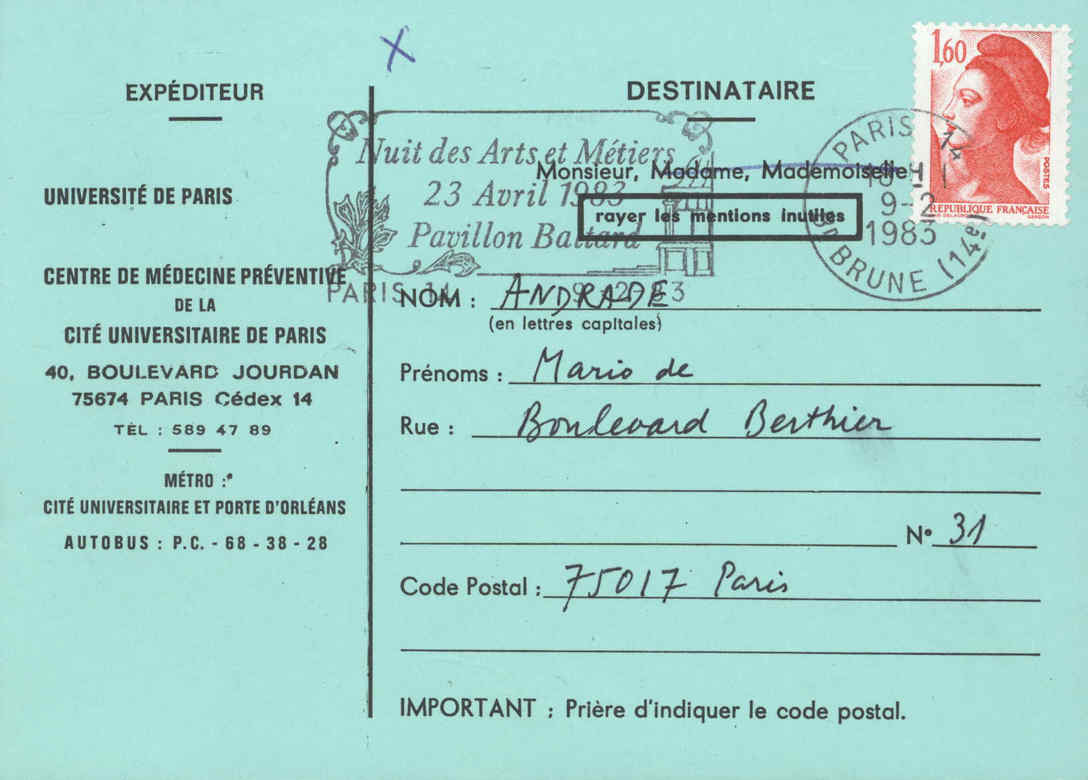 EXPÉDITEUR
UNIVERSITÉ DE PARIS
CENTRE DE MÉDECINE PRÉVENTIVE
DE LA
CITÉ UNIVERSITAIRE DE PARIS
40, BOULEVARD JOURDAN
75674 PARIS Cédex 14
TÈL : 589 47 89
MÉTRO :
CITÉ UNIVERSITAIRE ET PORTE D'ORLÉANS
AUTOBUS : P.C. - 68 - 38 - 28
X
Nuit des Arts et Métiers
23 Avril 1983
Pavillon Baltard
PARIS 14 9-2 83
DESTINATAIRE
Monsieur, Madame, Mademoiselle
rayer les mentions inutiles
NOM : ANDRADE
(en lettres capitales)
Prénoms : Mario de
Rue : Boulevard Berthier
N° 31
Code Postal : 75017 Paris
IMPORTANT : Prière d'indiquer le code postal.
1,60
POSTES
RÉPUBLIQUE FRANÇAISE
PARIS 14
9-2
1983
BRUNE (14e)